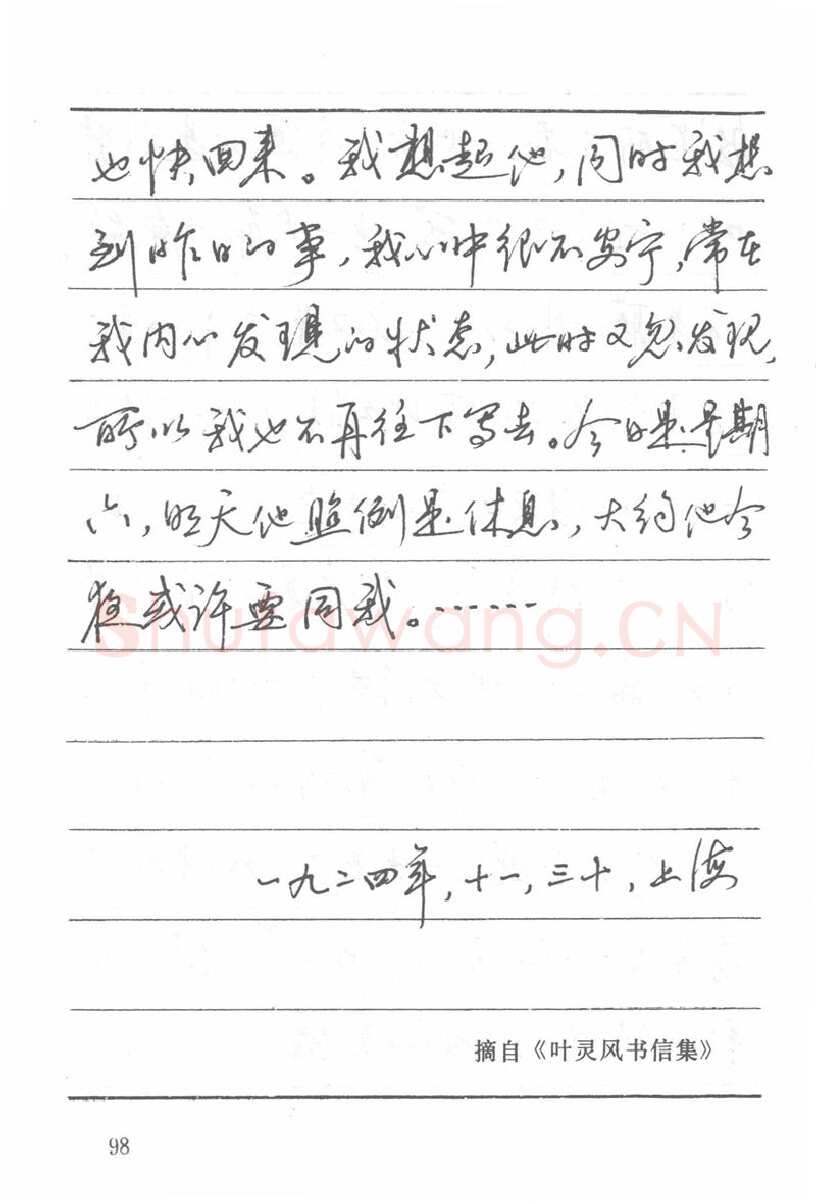 也快回来。我想起他，同时我想
到昨日的事，我心中很不安宁，常在
我内心发现的状态，此时又忽发现，
所以我也不再往下写去。今日是星期
六，明天他照例是休息，大约他今
夜或许要同我。……
Shufawang.CN
一九二四年，十一，三十，上海
摘自《叶灵风书信集》
98